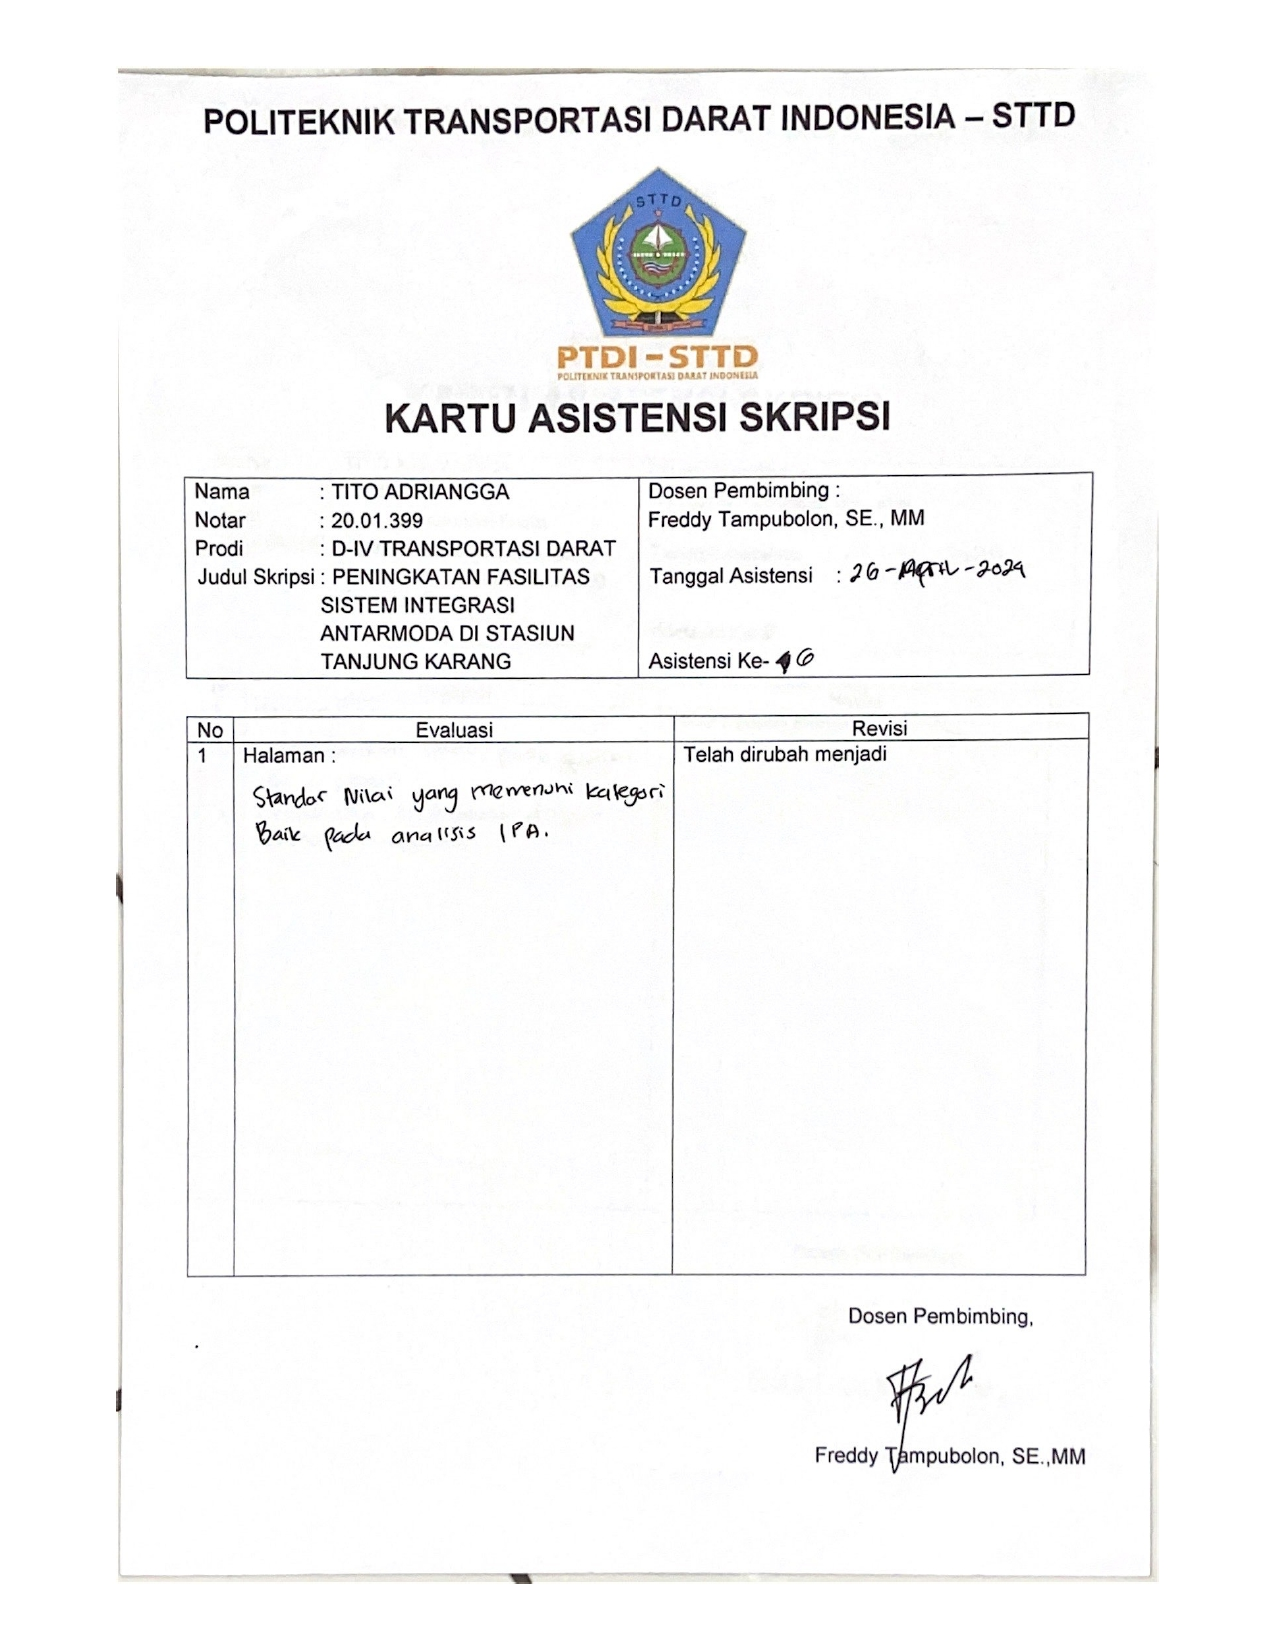 POLITEKNIK TRANSPORTASI DARAT INDONESIA – STTD
STTD
PTDI – STTD
POLITEKNIK TRANSPORTASI DARAT INDONESIA
KARTU ASISTENSI SKRIPSI
Nama : TITO ADRIANGGA
Notar : 20.01.399
Prodi : D-IV TRANSPORTASI DARAT
Judul Skripsi : PENINGKATAN FASILITAS
SISTEM INTEGRASI
ANTARMODA DI STASIUN
TANJUNG KARANG
Dosen Pembimbing :
Freddy Tampubolon, SE., MM
Tanggal Asistensi : 26-April-2024
Asistensi Ke- 6
No Evaluasi Revisi
1 Halaman : Telah dirubah menjadi
Standar Nilai yang memenuhi kategori
Baik pada analisis IPA.
Dosen Pembimbing,
Freddy Tampubolon, SE.,MM